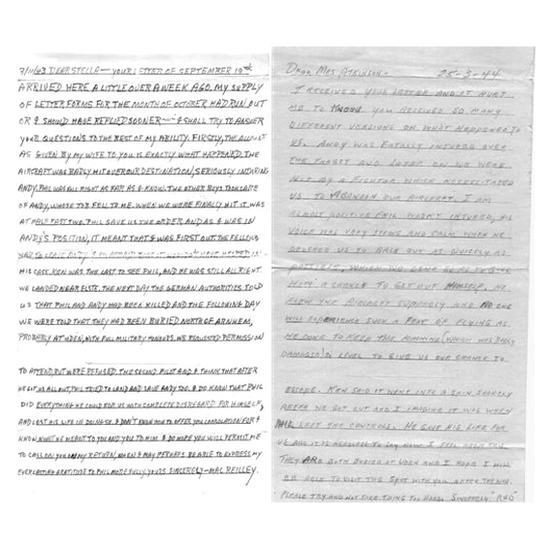 7/11/43 DEAR STELLA — YOUR LETTER OF SEPTEMBER 19th
ARRIVED HERE A LITTLE OVER A WEEK AGO. MY SUPPLY
OF LETTER FORMS FOR THE MONTH OF OCTOBER HAD RUN OUT
OR I SHOULD HAVE REPLIED SOONER — I SHALL TRY TO ANSWER
YOUR QUESTIONS TO THE BEST OF MY ABILITY. FIRSTLY, THE ACCOUNT
AS GIVEN BY MY WIFE TO YOU IS EXACTLY WHAT HAPPENED. THE
AIRCRAFT WAS BADLY HIT OVER OUR DESTINATION, SERIOUSLY INJURING
ANDY. PHIL WAS ALL RIGHT AS FAR AS I KNOW. THE OTHER BOYS TOOK CARE
OF ANDY, WHOSE JOB FELL TO ME. WHEN WE WERE FINALLY HIT IT WAS
AT HALF PAST TWO. PHIL GAVE US THE ORDER AND AS I WAS IN
ANDY'S POSITION, IT MEANT THAT I WAS FIRST OUT. THE FELLOWS
HIS CASE. KEN WAS THE LAST TO SEE PHIL, AND HE WAS STILL ALL RIGHT.
WE LANDED NEAR ELST. THE NEXT DAY THE GERMAN AUTHORITIES TOLD
US THAT PHIL AND ANDY HAD BEEN KILLED AND THE FOLLOWING DAY
WE WERE TOLD THAT THEY HAD BEEN BURIED NORTH OF ARNHEM,
PROBABLY AT UDEN, WITH FULL MILITARY HONOURS. WE REQUESTED PERMISSION
TO ATTEND BUT WERE REFUSED. THE SECOND PILOT AND I THINK THAT AFTER
HE GOT US ALL OUT, PHIL TRIED TO LAND AND SAVE ANDY TOO. I DO KNOW THAT PHIL
DID EVERYTHING HE COULD FOR US WITH COMPLETE DISREGARD FOR HIMSELF,
AND LOST HIS LIFE IN DOING SO. I DON'T KNOW HOW TO OFFER YOU CONSOLATION FOR I
KNOW WHAT HE MEANT TO YOU AND YOU TO HIM. I DO HOPE YOU WILL PERMIT ME
TO CALL ON YOU ON MY RETURN, WHEN I MAY PERHAPS BE ABLE TO EXPRESS MY
EVERLASTING GRATITUDE TO PHIL MORE FULLY. YOURS SINCERELY — MAL REILLEY.
DEAR MRS ATKINSON- 25-3-44
I RECEIVED YOUR LETTER AND IT HURT
ME TO KNOW YOU RECEIVED SO MANY
DIFFERENT VERSIONS ON WHAT HAPPENED TO
US. ANDY WAS FATALLY INJURED OVER
THE TARGET AND LATER ON WE WERE
HIT BY A FIGHTER WHICH NECESSITATED
US TO ABANDON OUR AIRCRAFT. I AM
ALMOST POSITIVE PHIL WASN'T INJURED, HIS
VOICE WAS VERY STRONG AND CALM WHEN HE
ORDERED US TO BALE OUT AS QUICKLY AS
POSSIBLE, WHICH WE DID SO AS TO GIVE
PHIL A CHANCE TO GET OUT HIMSELF. HE
FLEW THE AIRCRAFT SUPERBLY AND NO ONE
WILL EXPERIENCE SUCH A FEAT OF FLYING AS
HE DONE TO KEEP THE MACHINE (WHICH WAS BADLY
DAMAGED) LEVEL TO GIVE US OUR CHANCE TO
ESCAPE. KEN SAID IT WENT INTO A SPIN SHORTLY
AFTER HE GOT OUT AND I IMAGINE IT WAS WHEN
PHIL LEFT THE CONTROLS. HE GAVE HIS LIFE FOR
US AND IT IS NEEDLESS TO SAY HOW I FEEL ABOUT THIS.
THEY ARE BOTH BURIED AT UDEN AND I HOPE I WILL
BE ABLE TO VISIT THE SPOT WITH YOU AFTER THE WAR.
PLEASE TRY AND NOT TAKE THINGS TOO HARD. SINCERELY "RED"